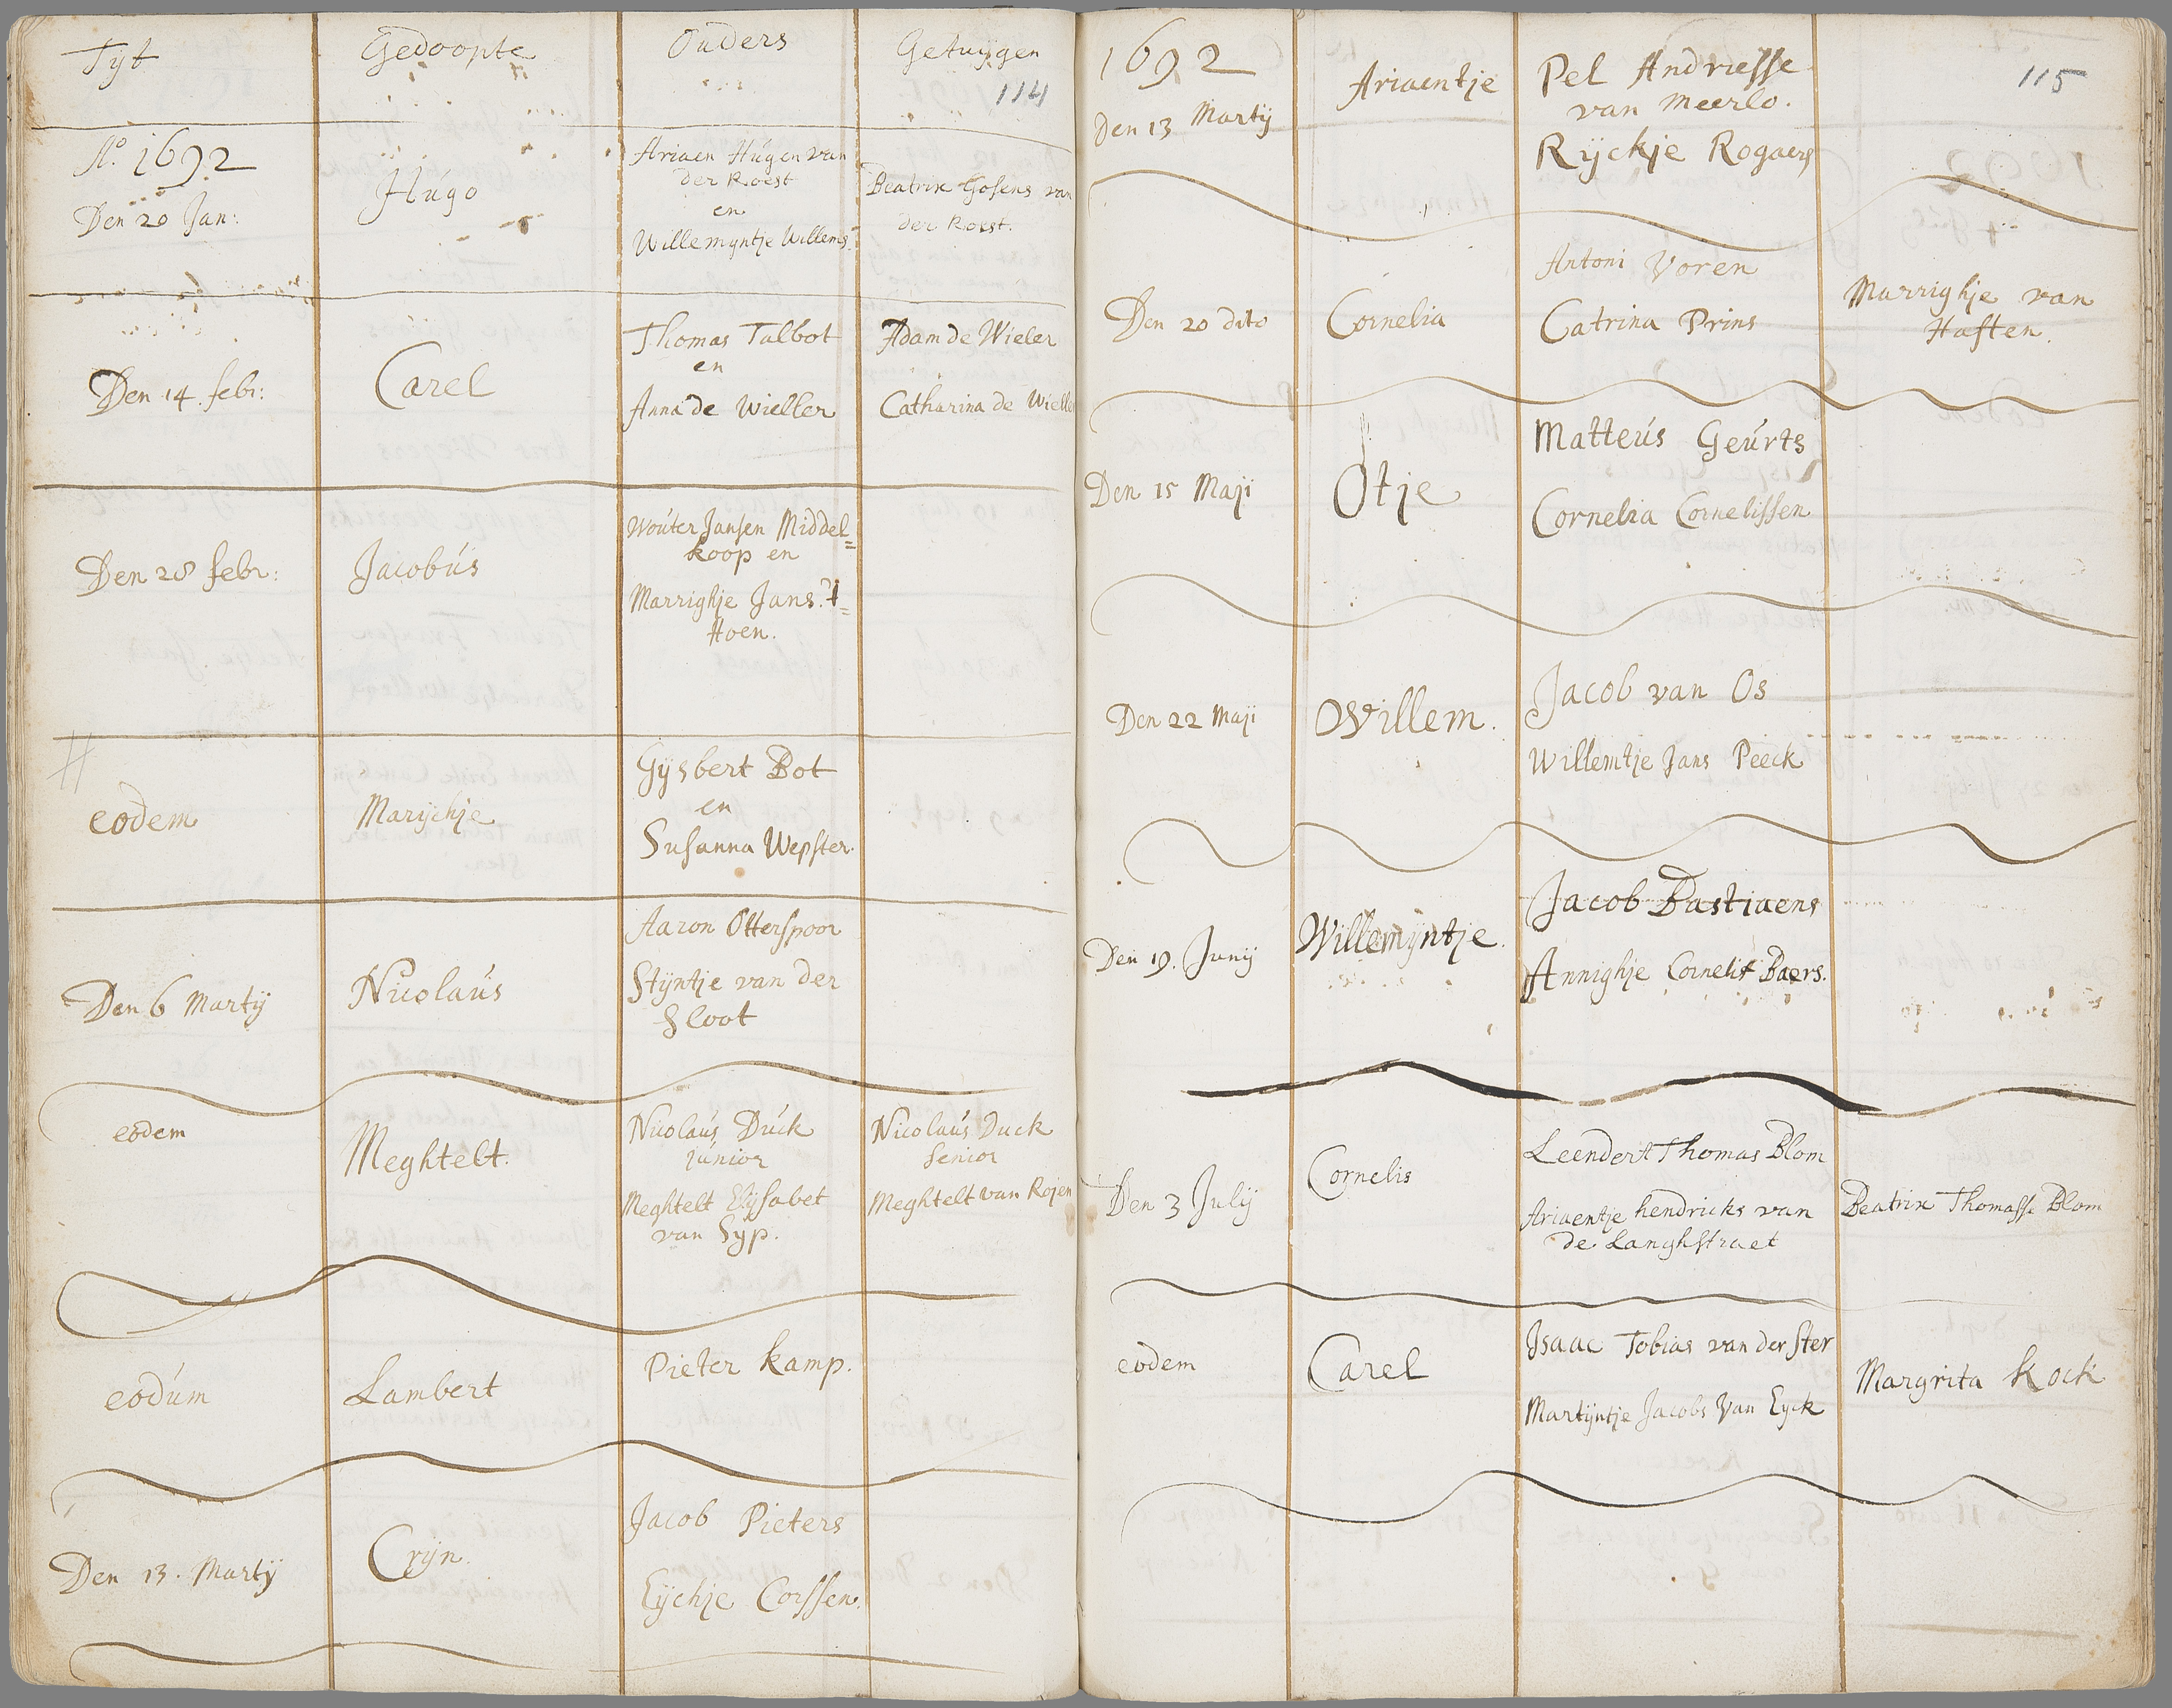 Tijt Gedoopte Ouders Getuijgen
114
Ao. 1692
Den 20 Jan: Húgo Ariaen Húgen van
der Roest
en
Willemijntje Willems.
Beatrix Gosens van
der Roest.
Den 14. febr: Carel Thomas Talbot
en
Anna de Wieller
Adam de Wieler
Catharina de Wielle
Den 28 febr: Jacobús Woúter Jansen Middel=
koop en
Marrighje Jans. 't
Hoen.
eodem Marijchje Gijsbert Bot
en
Susanna Wepster.
Den 6 Martij Nicolaús Aaron Otterspoor
Stijntje van der
Sloot
eodem Meghtelt. Nicolaús Dúck
júnior
Meghtelt Elijsabet
van Syp.
Nicolaús Duck
Senior
Meghtelt van Rojen
eodúm Lambert Pieter kamp.
Den 13. Martij Crijn. Jacob Pieters
Eijchje Corssen.
1692 115
Den 13 Martij Ariaentje Pel Andriesse
van Meerlo.
Rijckje Rogaers
Den 20 dito Cornelia Antoni Voren
Catrina Prins
Marrighje van
Haften.
Den 15 Maji Otje Matteús Geúrts
Cornelia Cornelissen
Den 22 Maji Willem. Jacob van Os
Willemtje Jans Peeck
Den 19. Junij Willemijntje. Jacob Bastiaens
Annighje Cornelis Baers.
Den 3 Julij Cornelis Leendert Thomas Blom
Ariaentje hendricks van
de Langhstraet
Beatrix Thomasse Blom
eodem Carel Isaac Tobias van der Ster
Martijntje Jacobs Van Eyck
Margrita Kock